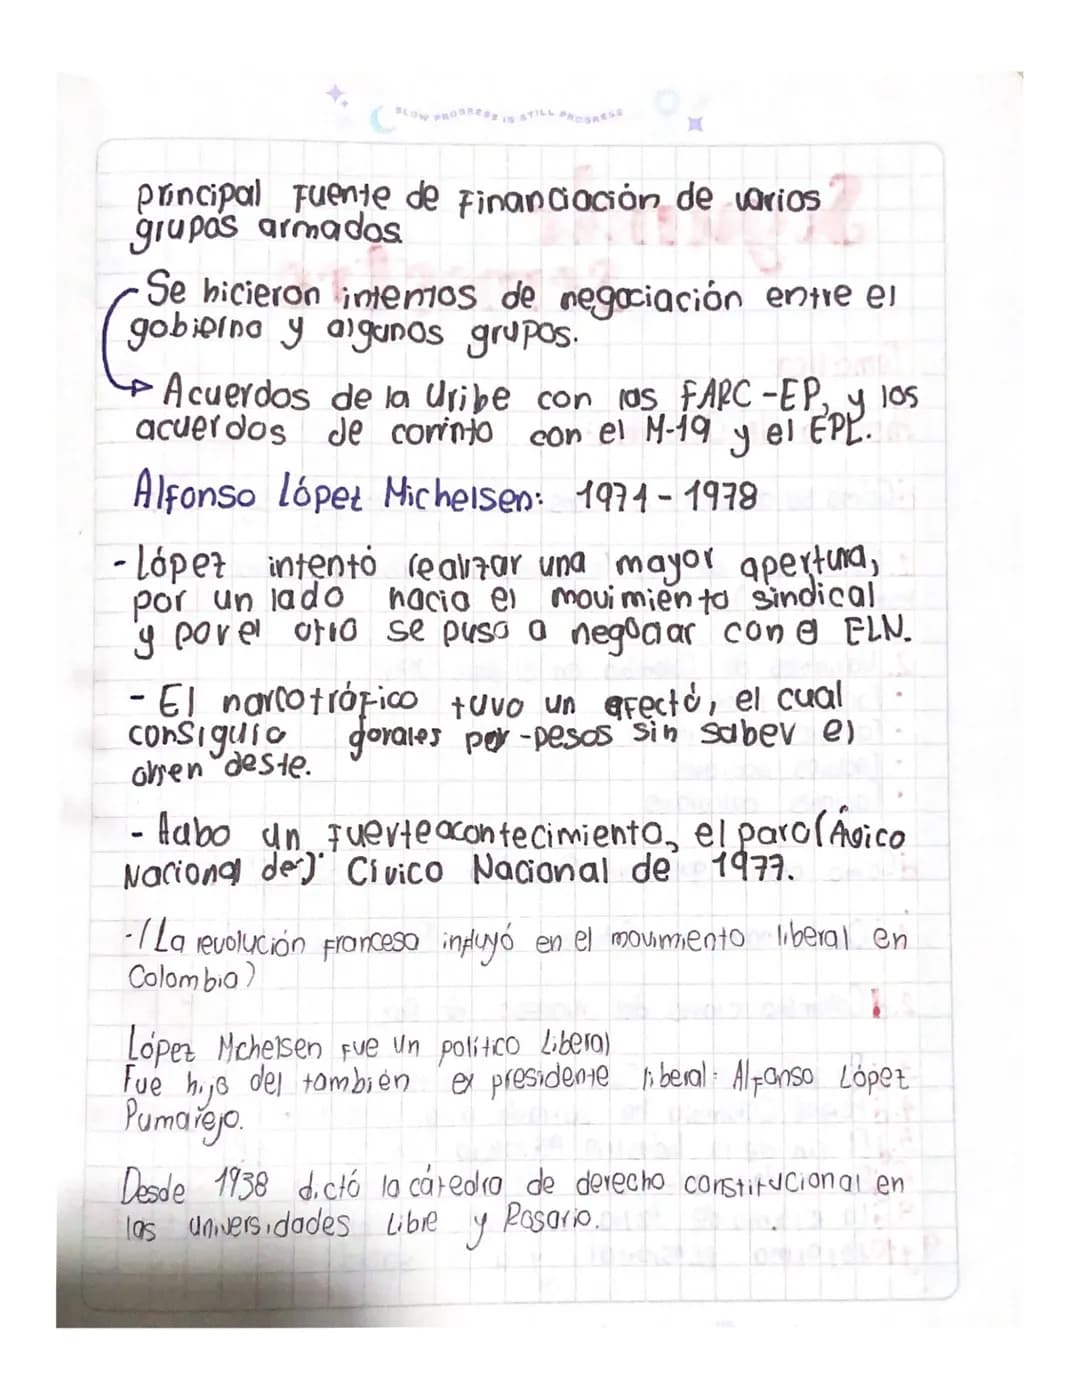 SLOW PROGRESS IS STILL PROGRESS
principal Fuente de Financiación de varios
grupos armados
Se hicieron intentos de negociación entre el
gobierno y algunos grupos.
Acuerdos de la Uribe con las FARC-EP, y los
acuerdos de corinto con el M-19 y el EPL.
Alfonso lópez Michelsen: 1974-1978
-López intentó realizar una mayor apertura,
por un lado hacia el movimiento sindical
y por el otro se puso a negociar con el ELN.
- El narcotráfico tuvo un efectó, el cual
consiguió por -pesos sin saber el
deste.
- Hubo un fuerte acontecimiento, el paro (
Nacional de) Civico Nacional de 1977.
-(La revolución francesa influyó en el movimiento liberal en
Colombia)
López Mchelsen fue un político Liberal
Fue hijo del también ex presidente liberal: Alfonso López
Pumarejo.
Desde 1938 dictó la cátedra de derecho constitucional en
las universidades Libre y Rosario.